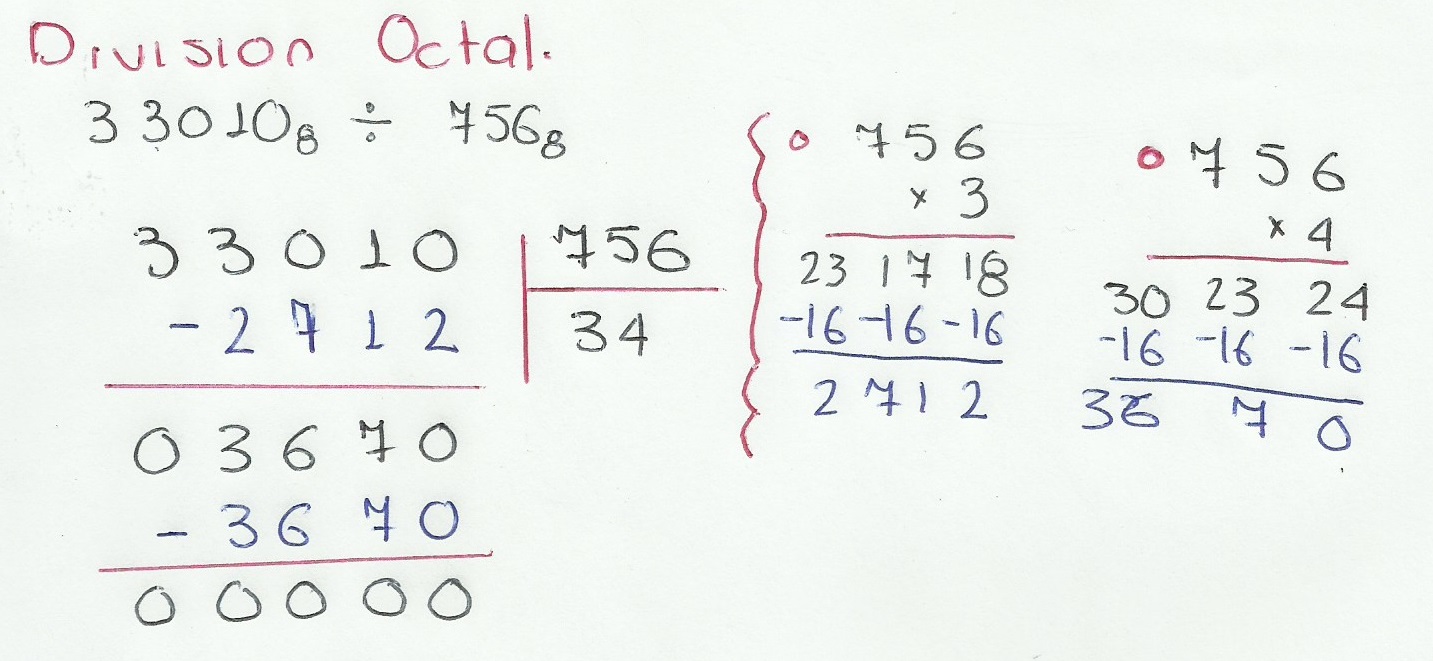 División Octal.
33010₈ ÷ 756₈
33010 | 756
- 2712 34
03670
- 3670
00000
{ ° 756
× 3
23 17 18
-16 -16 -16
2 7 1 2
° 756
× 4
30 23 24
-16 -16 -16
36 7 0